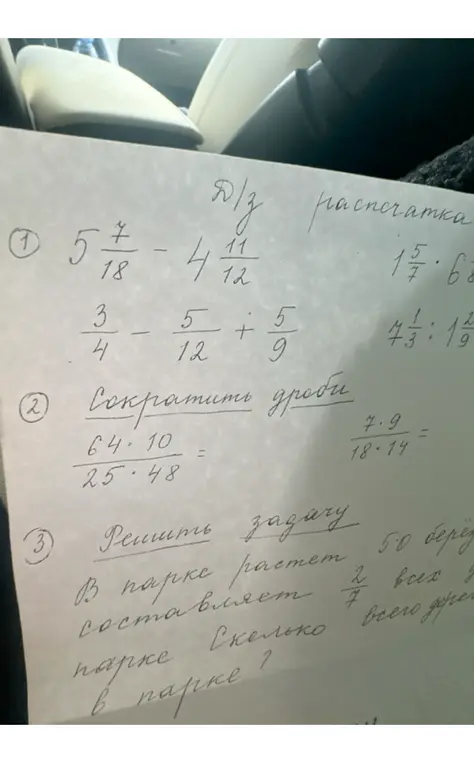 Д/з распечатка
① 5 7/18 - 4 11/12 1 5/7 · 6
3/4 - 5/12 + 5/9 7 1/3 : 1 2/9
② Сократить дроби
64·10/25·48 = 7·9/18·14 =
③ Решить задачу
В парке растет 50 берёз
составляет 2/7 всех
парке Сколько всего дере
в парке?